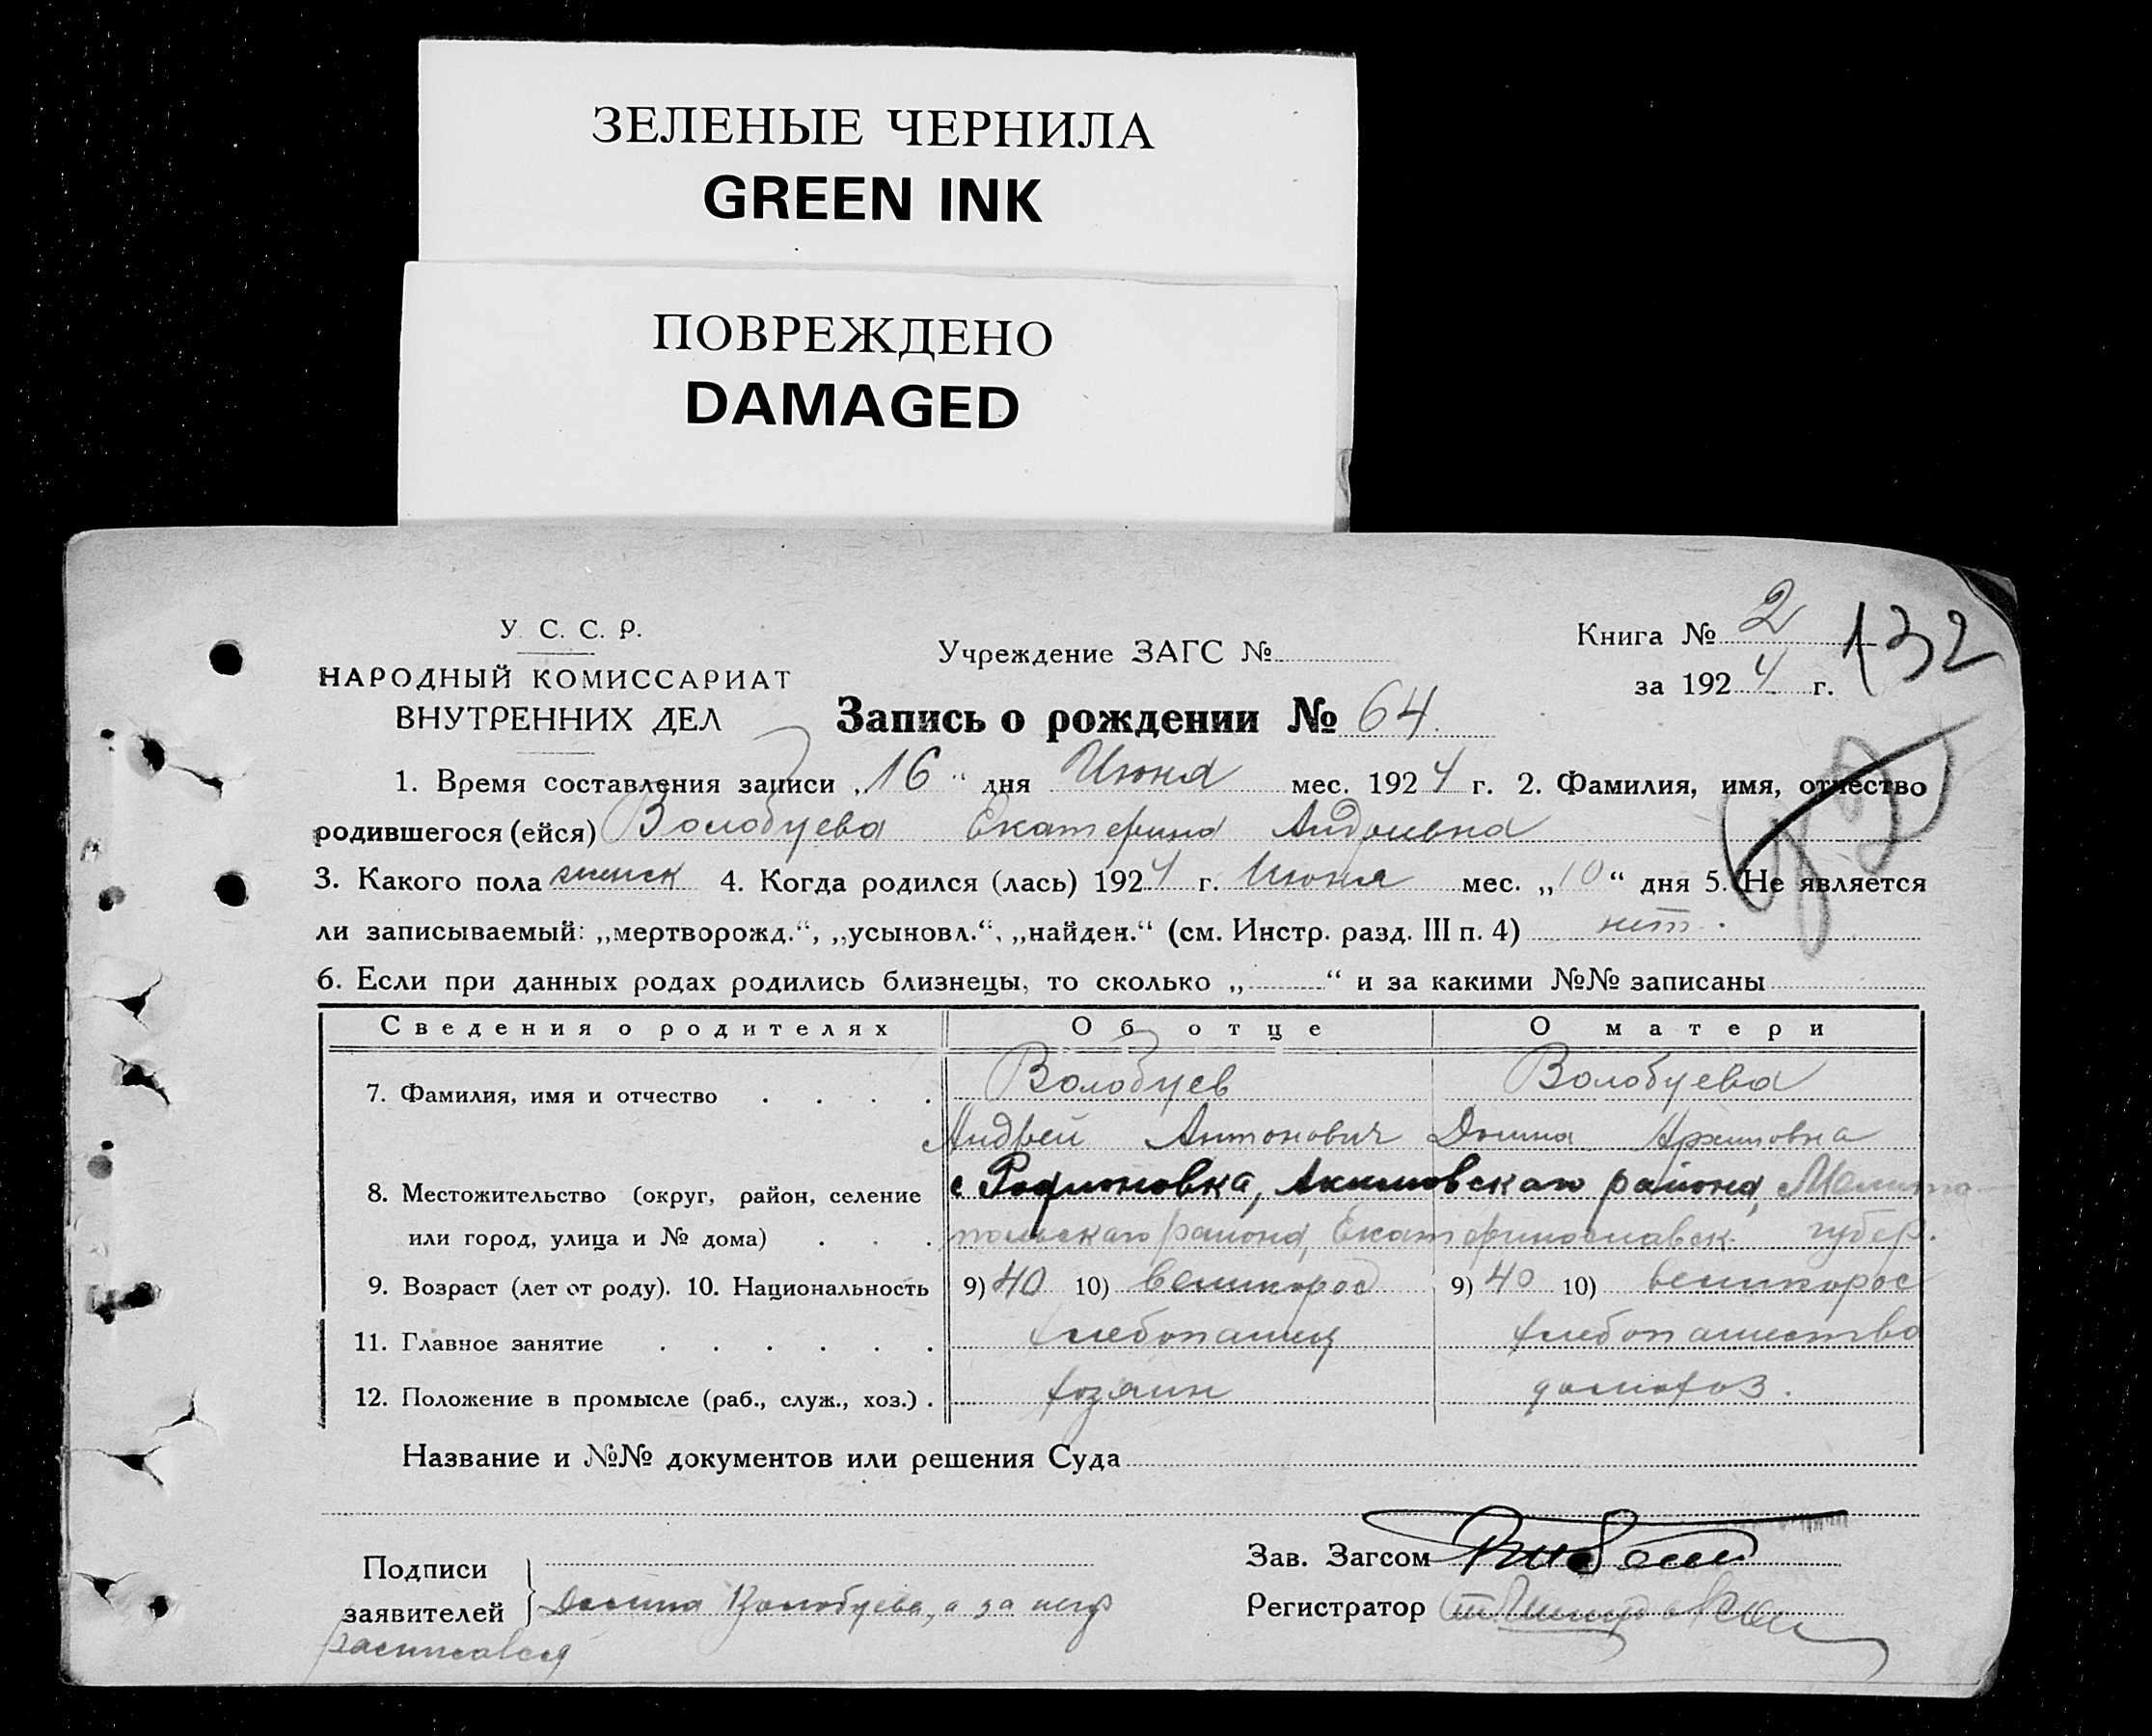 ЗЕЛЕНЫЕ ЧЕРНИЛА
GREEN INK
ПОВРЕЖДЕНО
DAMAGED
У. С. С. Р.
НАРОДНЫЙ КОМИССАРИАТ
ВНУТРЕННИХ ДЕЛ
Учреждение ЗАГС №
Книга № 2
132
за 1924 г.
Запись о рождении № 64.
1. Время составления записи „16“ дня Июня мес. 1924 г. 2. Фамилия, имя, отчество
родившегося (ейся) Волобуева Екатерина Андреевна
3. Какого пола женск 4. Когда родился (лась) 1924 г. Июня мес. „10“ дня 5. Не является
ли записываемый: „мертворожд.“, „усыновл.“, „найден.“ (см. Инстр. разд. III п. 4) нет.
6. Если при данных родах родились близнецы, то сколько „ “ и за какими №№ записаны
Сведения о родителях Об отце О матери
7. Фамилия, имя и отчество Волобуев Волобуева
Андрей Антонович Домна Архиповна
8. Местожительство (округ, район, селение с Родионовка, Акимовскаго района, Мелито
или город, улица и № дома) польскаго района, Екатеринославск. губер.
9. Возраст (лет от роду). 10. Национальность 9) 40 10) великорос 9) 40 10) великорос
11. Главное занятие хлебопашец хлебопашество
12. Положение в промысле (раб., служ., хоз.) хозяин домохоз.
Название и №№ документов или решения Суда
Подписи
заявителей Домна Волобуева, а за негр
расписався
Зав. Загсом
Регистратор